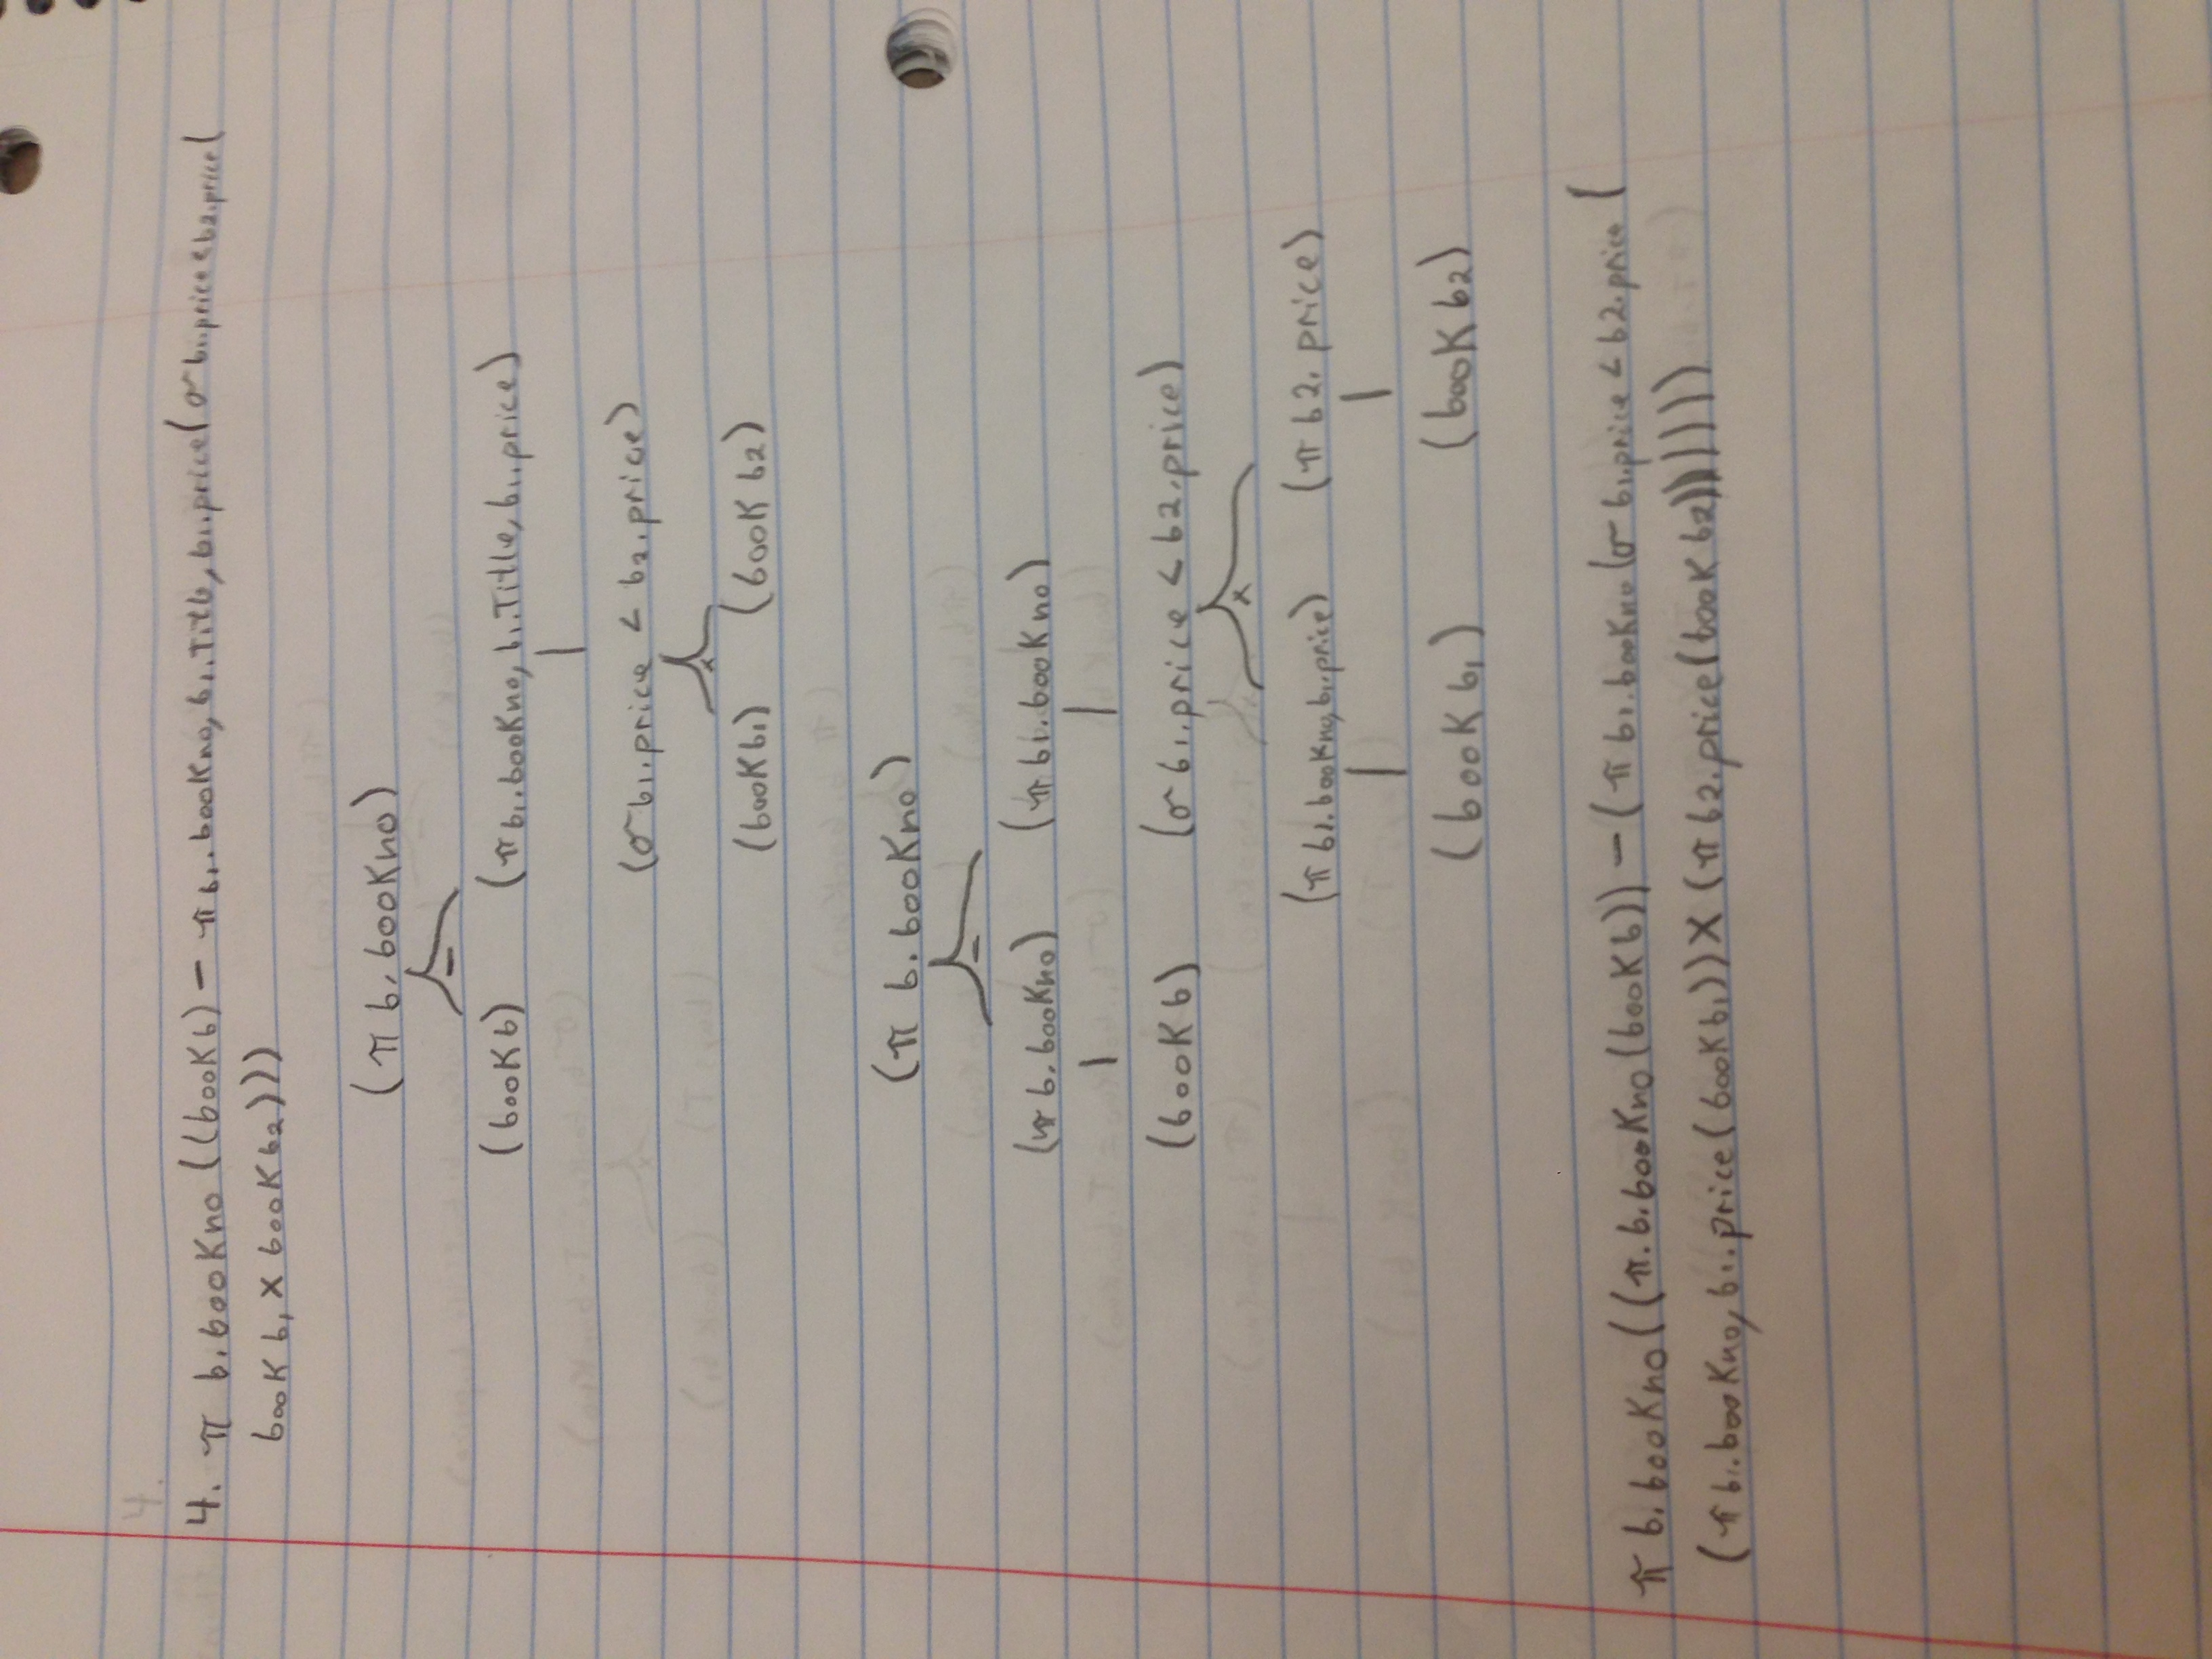 4.
4. π b.bookno ((book b) − π b1.bookno, b1.Title, b1.price (σ b1.price < b2.price (
book b1 x book b2)))
(π b.bookno)
−
(book b) (π b1.bookno, b1.Title, b1.price)
(σ b1.price < b2.price)
x
(book b1) (book b2)
(π b.bookno)
−
(π b.bookno) (π b1.bookno)
(book b) (σ b1.price < b2.price)
x
(π b1.bookno, b1.price) (π b2.price)
(book b1) (book b2)
π b.bookno((π.b.bookno(book b)) − (π b1.bookno(σ b1.price < b2.price (
(π b1.bookno, b1.price(book b1)) X (π b2.price(book b2)))))))